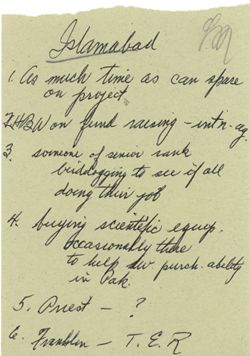 Islamabad
1. As much time as can spare
on project
2. HBW on fund raising - int'n. ag.
3. someone of senior rank
birddogging to see if all
doing their job
4. buying scientific equip.
Occasionally there
to help dev. purch. ability
in Pak.
5. Priest - ?
6. Franklin - T. E. R